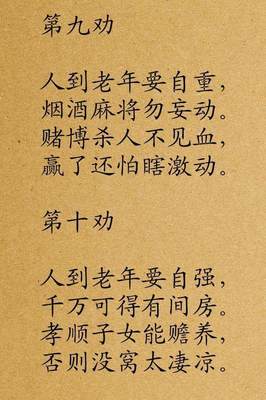 第九劝
人到老年要自重，
烟酒麻将勿妄动。
赌博杀人不见血，
赢了还怕瞎激动。
第十劝
人到老年要自强，
千万可得有间房。
孝顺子女能赡养，
否则没窝太凄凉。